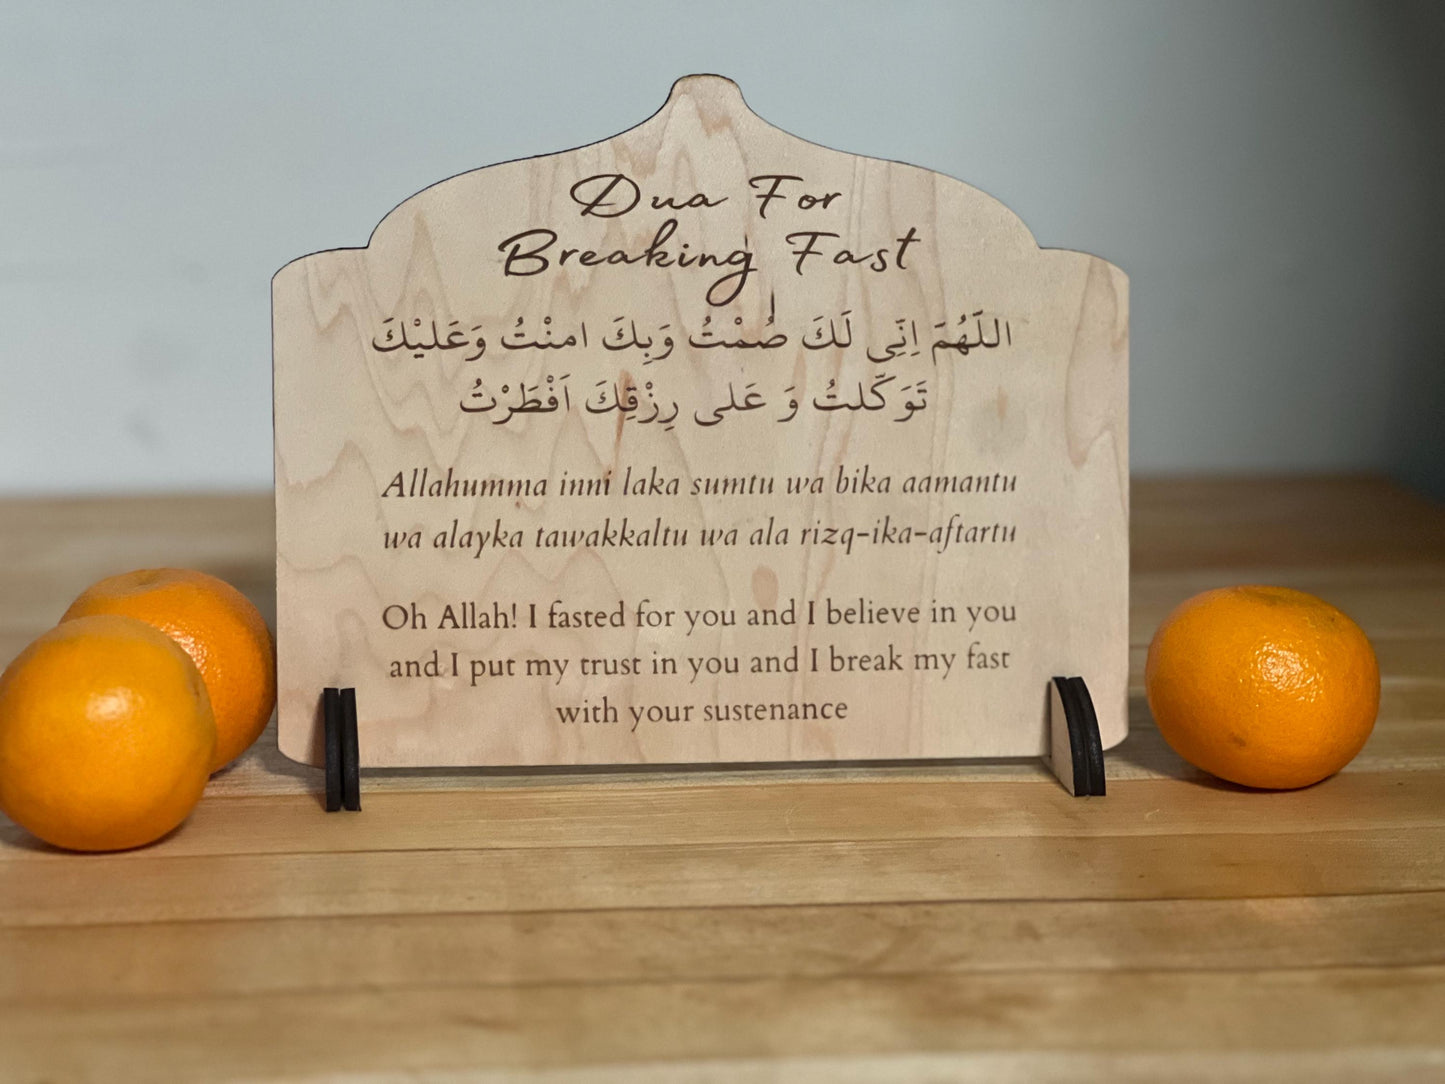 Dua For
Breaking Fast
اللَهُمَ اِنِّى لَكَ صُمْتُ وَبِكَ امنْتُ وَعَليْكَ
تَوَكَّلتُ وَ عَلى رِزْقِكَ اَفْطَرْتُ
Allahumma inni laka sumtu wa bika aamantu
wa alayka tawakkaltu wa ala rizq-ika-aftartu
Oh Allah! I fasted for you and I believe in you
and I put my trust in you and I break my fast
with your sustenance